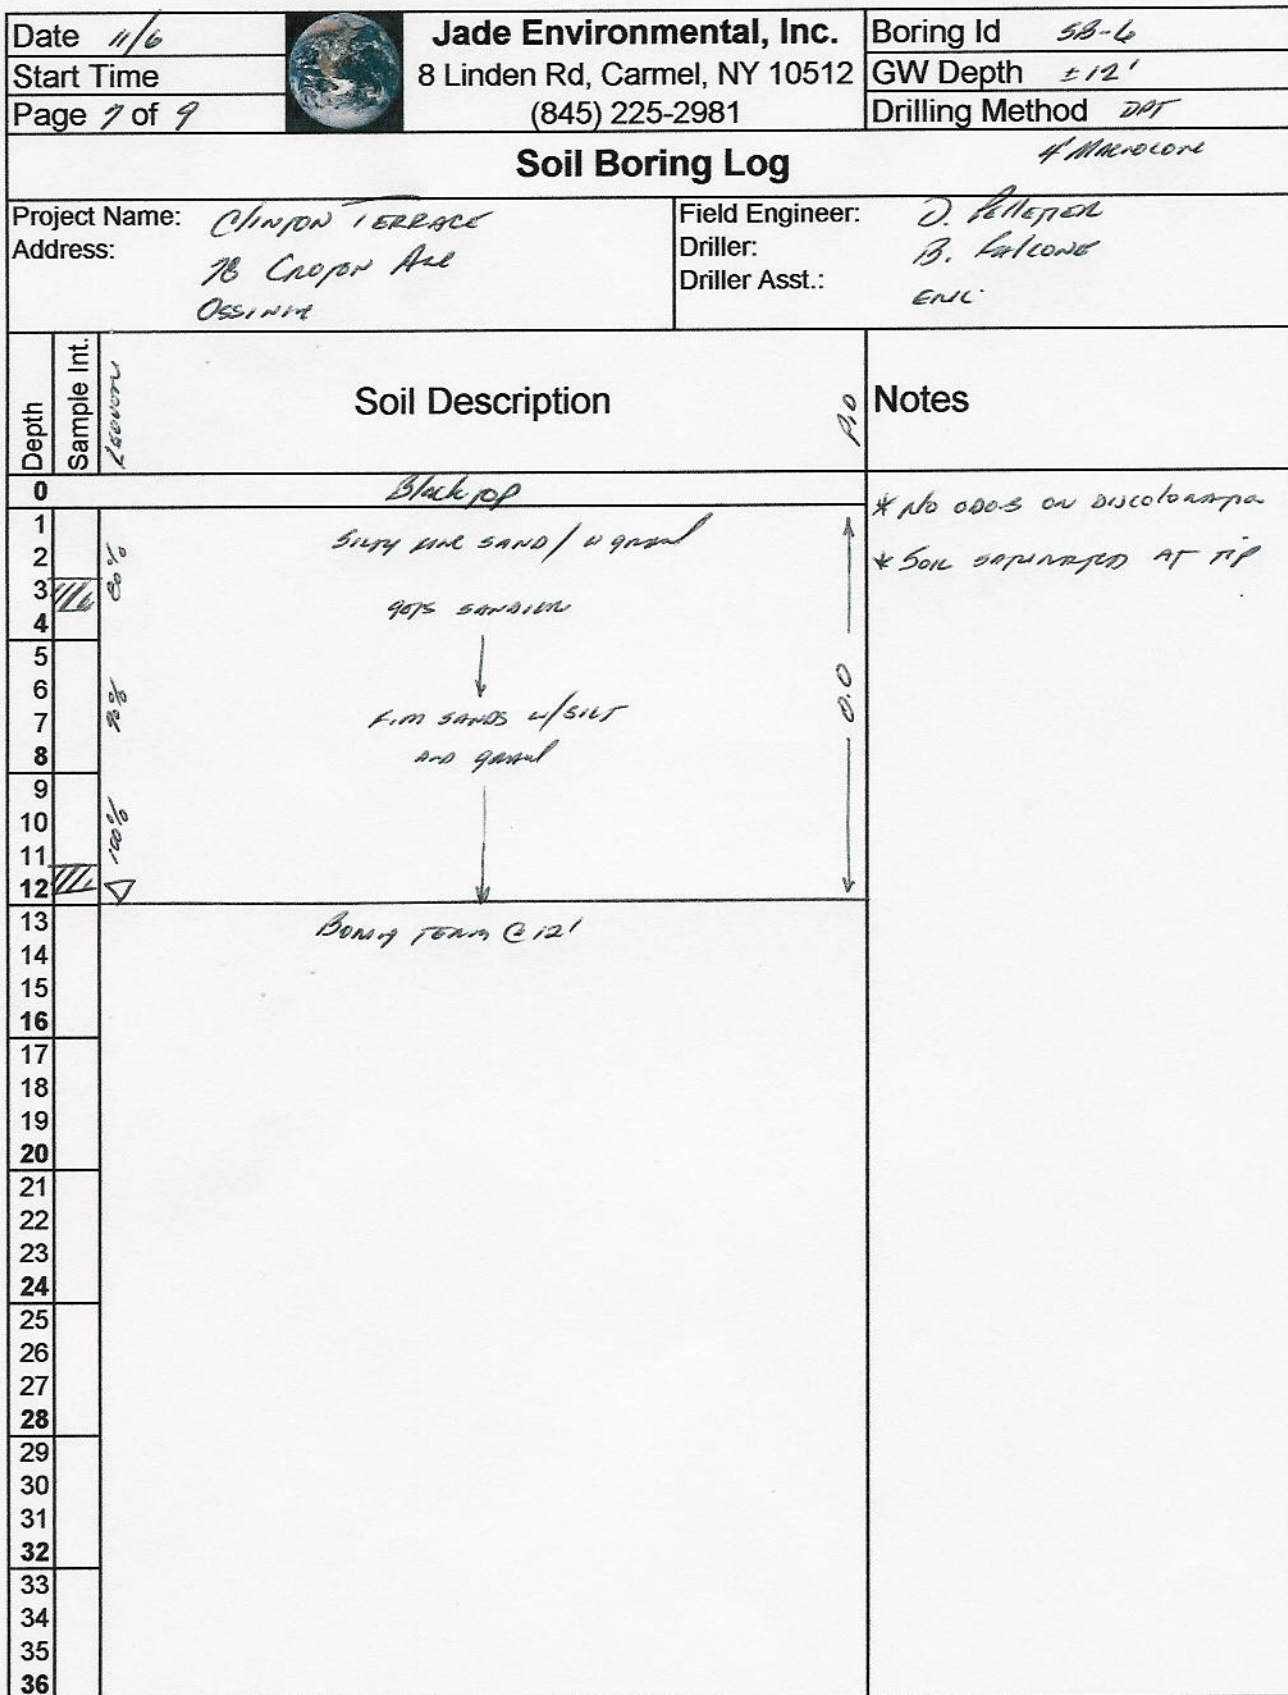 Date 11/6
Start Time
Page 7 of 9
Jade Environmental, Inc.
8 Linden Rd, Carmel, NY 10512
(845) 225-2981
Boring Id SB-6
GW Depth ±12'
Drilling Method DPT
4' Macrocore
Soil Boring Log
Project Name: Clinton Terrace
Address: 78 Croton Ave
Ossining
Field Engineer: D. Pelletier
Driller: B. Falcone
Driller Asst.: Eric
Depth
Sample Int.
Recovery
Soil Description
PID
Notes
0 Blacktop
1
2
3
4
5
6
7
8
9
10
11
12
13
14
15
16
17
18
19
20
21
22
23
24
25
26
27
28
29
30
31
32
33
34
35
36
80%
90%
100%
Silty fine sand/ w gravel
gets sandier
F.m sands w/silt
and gravel
Boring term @ 12'
0.0
* No odors or discoloration
* Soil saturated at tip